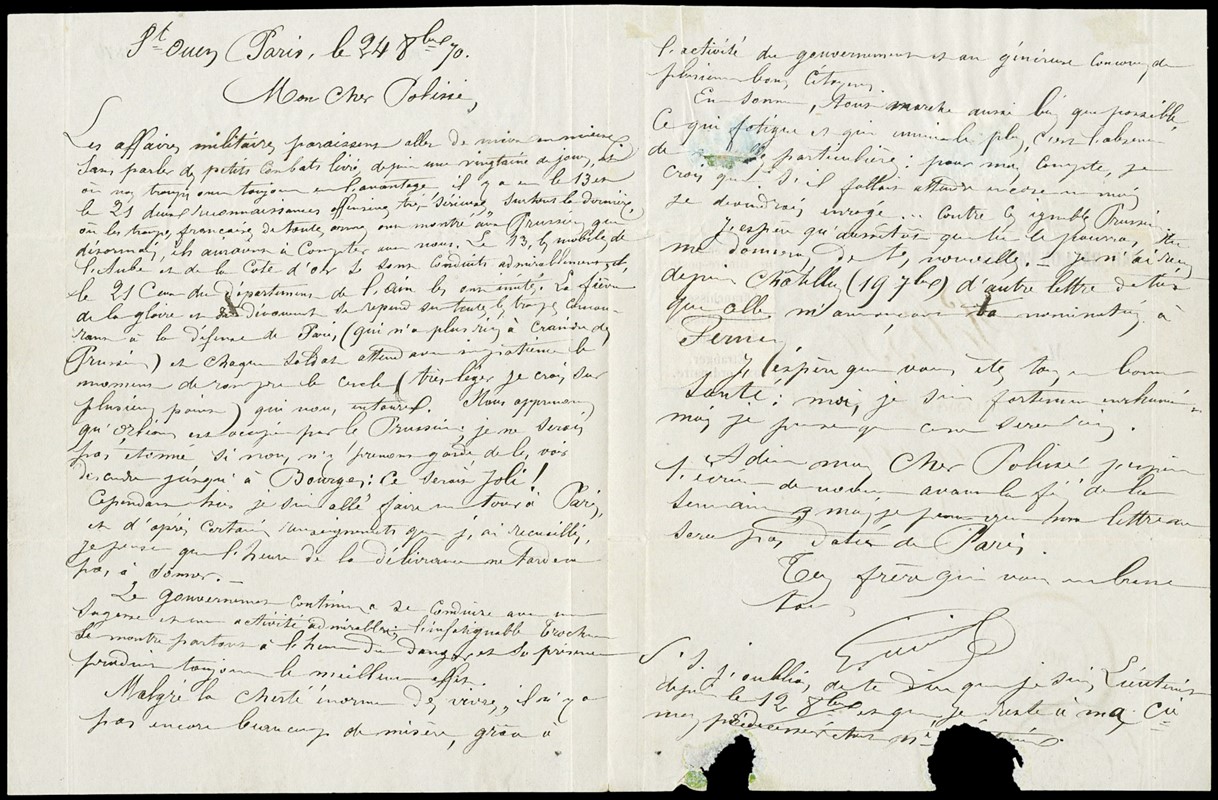 St Ouen Paris, le 24 8bre 70.
Mon Cher Polissié,
Les affaires militaires paraissent aller de mieux en mieux
Sans parler de petits Combats livrés depuis une vingtaine de jours, et
où nos troupes ont toujours eu l'avantage, il y a eu le 13 et
le 21 deux reconnaissances offensives très sérieuses surtout la dernière
où les troupes françaises de toutes armes ont montré aux Prussiens que
désormais, ils auraient à Compter avec nous. Le 13, les mobiles de
l'Aube et de la Cote d'or se sont conduits admirablement et,
le 21 Ceux du département de l'ain les ont imités. La fièvre
de la gloire et du dévouement se répand sur toutes les troupes concou-
rant à la défense de Paris, (qui n'a plus rien à craindre des
Prussiens) et chaque soldat attend avec impatience le
moment de rompre le cercle (très léger je crois sur
plusieurs points) qui nous entoure. Nous apprenons
qu'Orléans est occupé par les Prussiens; je ne serais
pas étonné si nous n'y prenons garde de les voir
descendre jusqu'à Bourges: Ce serait joli!
Cependant hier je suis allé faire un tour à Paris,
et d'après certains renseignements que j'ai recueillis,
je pense que l'heure de la délivrance ne tardera
pas à sonner. —
Le gouvernement continue à se conduire avec une
sagesse et une activité admirables; l'infatigable Trochu
se montre partout à l'heure du danger et sa présence
produit toujours le meilleur effet.
Malgré la cherté énorme des vivres, il n'y a
pas encore beaucoup de misère, grâce à
l'activité du gouvernement et au généreux concours de
plusieurs bons Citoyens.
En somme, tout marche aussi bien que possible,
Ce qui fatigue et qui ennuie le plus, c'est l'absence
de particulières: pour mon compte, je
crois que s'il fallait attendre encore un mois
je deviendrais enragé... Contre les ignobles Prussiens
J'espère qu'aussitôt que tu le pourras, tu
me donneras de tes nouvelles. — Je n'ai reçu
depuis Châtillon (19 7bre) d'autre lettre de toi
que celle m'annonçant ta nomination à
Ferney
J'espère que vous êtes tous en bonne
santé: moi, je suis fortement enrhumé
mais je pense que ce ne sera rien.
Adieu mon cher Polissié je pense
t'écrire de nouveau avant la fin de la
semaine, mais je pense que ma lettre ne
sera pas datée de Paris.
Ton frère qui vous embrasse
tous
P.S. J'oubliais de te dire que je suis Lieutenant
depuis le 12 8bre et que je reste à ma Cie
mon prédécesseur étant